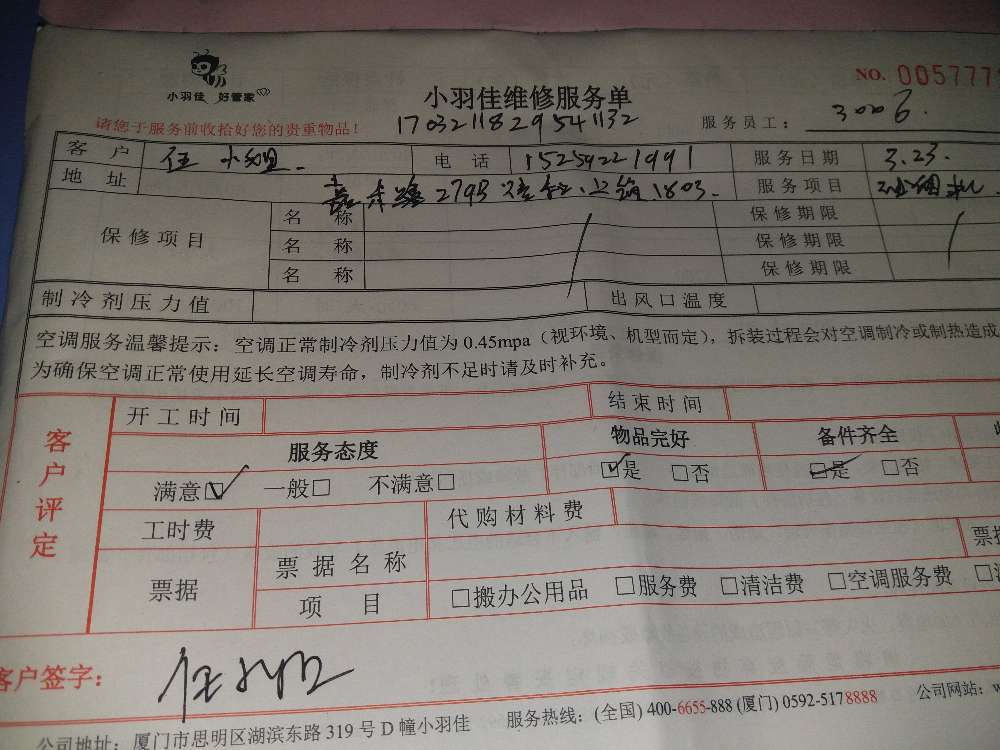 小羽佳 好管家
NO. 005777
小羽佳维修服务单
请您于服务前收拾好您的贵重物品!
1703211829541132
服务员工: 3006.
客户 小姐. 电话 15259221991 服务日期 3.23.
地址 2795 1803. 服务项目
保修项目 名称 保修期限
名称 保修期限
名称 保修期限
制冷剂压力值 出风口温度
空调服务温馨提示:空调正常制冷剂压力值为0.45mpa(视环境、机型而定),拆装过程会对空调制冷或制热造成
为确保空调正常使用延长空调寿命,制冷剂不足时请及时补充。
客户评定
开工时间 结束时间
服务态度 物品完好 备件齐全
满意☑ 一般□ 不满意□ ☑是 □否 □是 □否
工时费 代购材料费
票据 票据名称 票据
项目 □搬办公用品 □服务费 □清洁费 □空调服务费
客户签字:
公司地址:厦门市思明区湖滨东路319号D幢小羽佳 服务热线:(全国) 400-6655-888 (厦门) 0592-5178888 公司网站:w